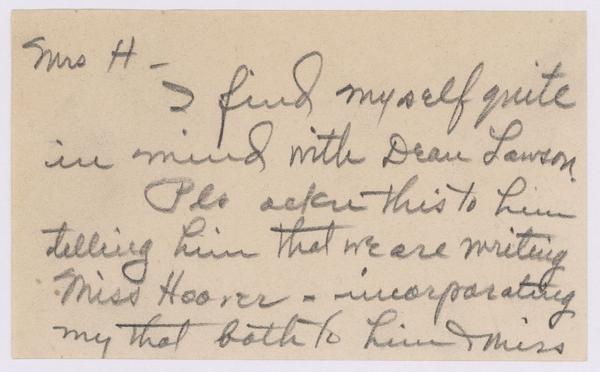 Mrs H -
I find myself quite
in mind with Dean Lawson.
Pls ackn this to him
telling him that we are writing
Miss Hoover - incorporating
my that both to him & Miss